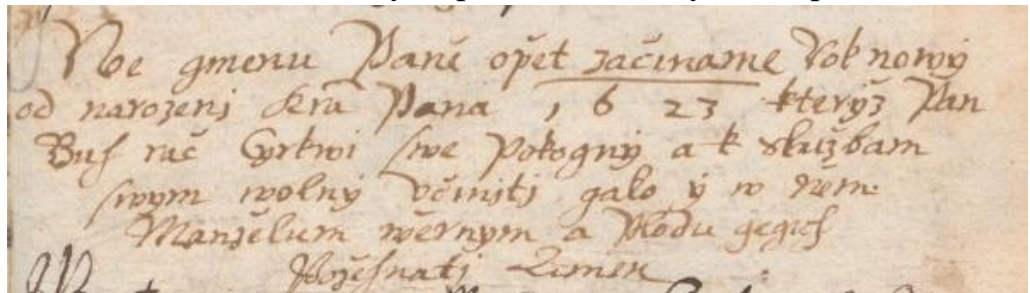 We gmenu Paně opět začiname Rok nowy
od narozenj Kra Pana 1 6 23 kteryz Pan
Buh rač Cyrkwi swe Pokogny a k službam
swym wolny včinitj gako y w něm
Manželum wěrnym a Plodu gegich
Požehnatj Amen